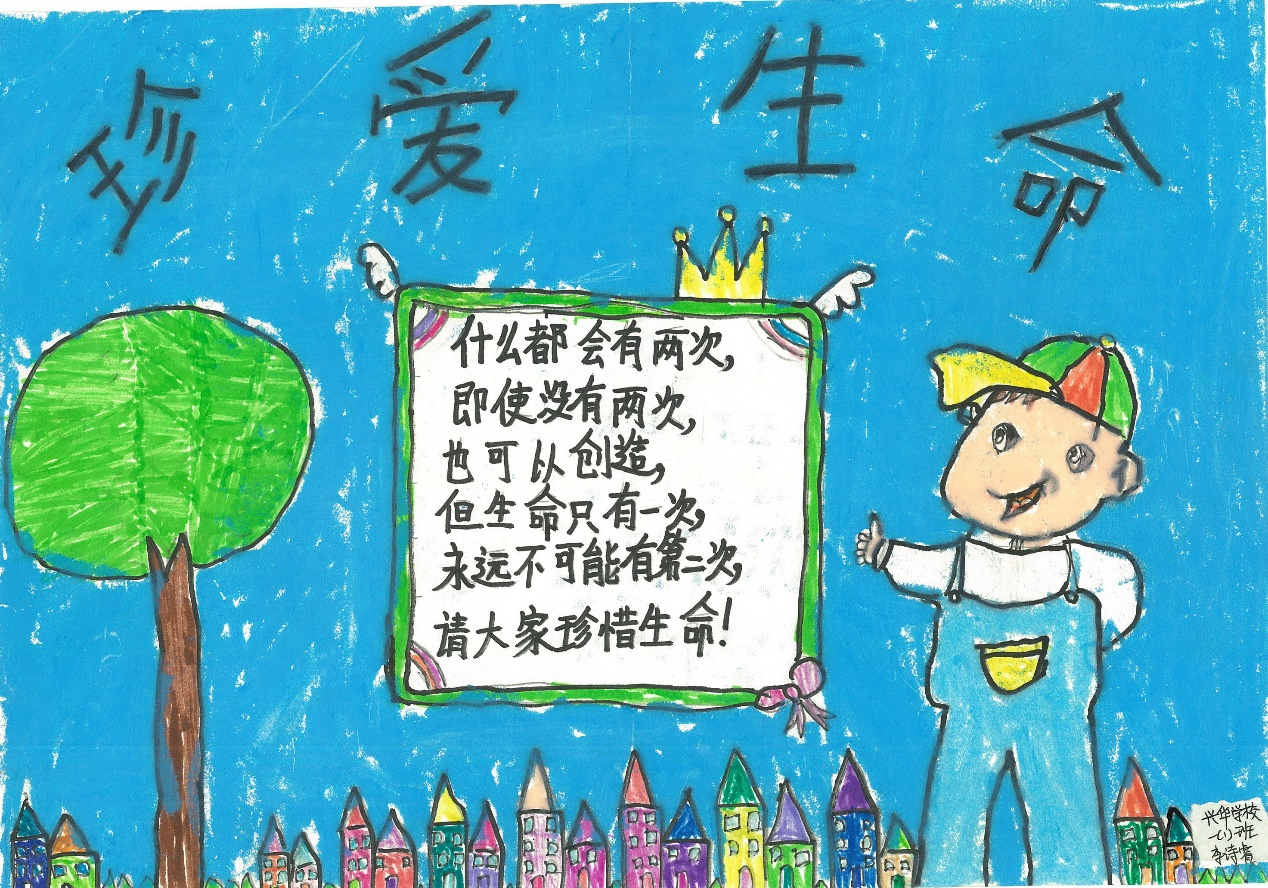 珍爱生命
什么都会有两次,
即使没有两次,
也可以创造,
但生命只有一次,
永远不可能有第二次,
请大家珍惜生命!
兴华学校
李诗睿